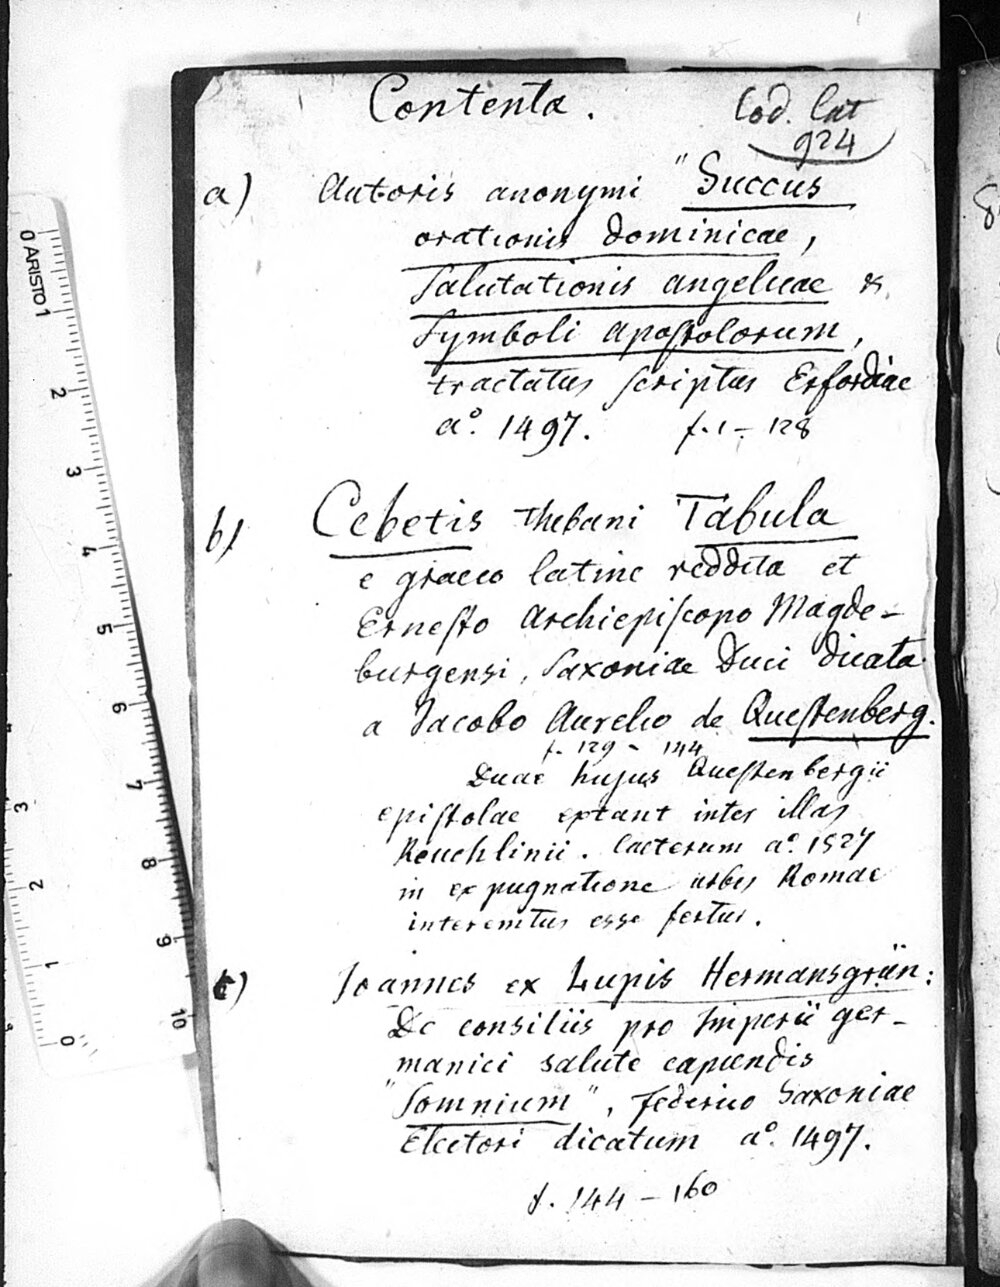 Contenta.
Cod. Lat
924
a) Autoris anonymi "Succus
orationis dominicae,
Salutationis angelicae &
Symboli apostolorum,
tractatus scriptus Erfordiae
a°. 1497. f. 1 - 128
b) Cebetis Thebani Tabula
e graeco latine reddita et
Ernesto Archiepiscopo Magde-
burgensi, Saxoniae Duci dicata
a Jacobo Aurelio de Questenberg.
f. 129 - 144
Duae hujus Questenbergii
epistolae extant inter illas
Reuchlinii. Caeterum a°. 1527
in expugnatione urbis Romae
interemtus esse fertur.
c) Joannes ex Lupis Hermansgrün:
De consiliis pro Imperii ger-
manici salute capiendis
"Somnium", Federico Saxoniae
Electori dicatum a°. 1497.
f. 144 - 160
0 ARISTO 1
2
3
4
5
6
7
8
9
10
3
2
1
0